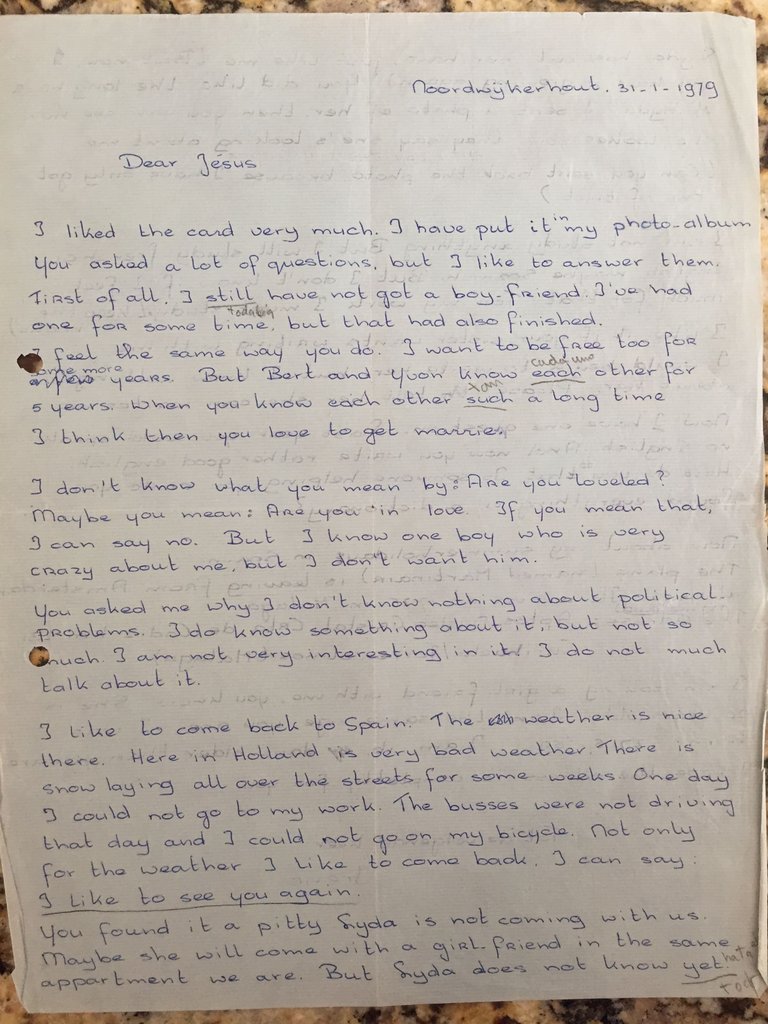 Noordwijkerhout. 31-1-1979
Dear Jésus
I liked the card very much. I have put it in my photo-album
You asked a lot of questions, but I like to answer them.
First of all, I still have not got a boy-friend. I've had
todabia
one for some time, but that had also finished.
I feel the same way you do. I want to be free too for
some more years. But Bert and Yvon know each other for
cada uno
tan
5 years. When you know each other such a long time
I think then you love to get marrie.
I don't know what you mean by: Are you "loveled?
Maybe you mean: Are you in love. If you mean that,
I can say no. But I know one boy who is very
crazy about me, but I don't want him.
You asked me why I don't know nothing about political-
problems. I do know something about it, but not so
much. I am not very interesting in it. I do not much
talk about it.
I like to come back to Spain. The weather is nice
there. Here in Holland is very bad weather. There is
snow laying all over the streets for some weeks. One day
I could not go to my work. The busses were not driving
that day and I could not go on my bicycle. Not only
for the weather I like to come back. I can say:
I like to see you again.
You found it a pitty Lyda is not coming with us.
Maybe she will come with a girl-friend in the same
appartment we are. But Lyda does not know yet.